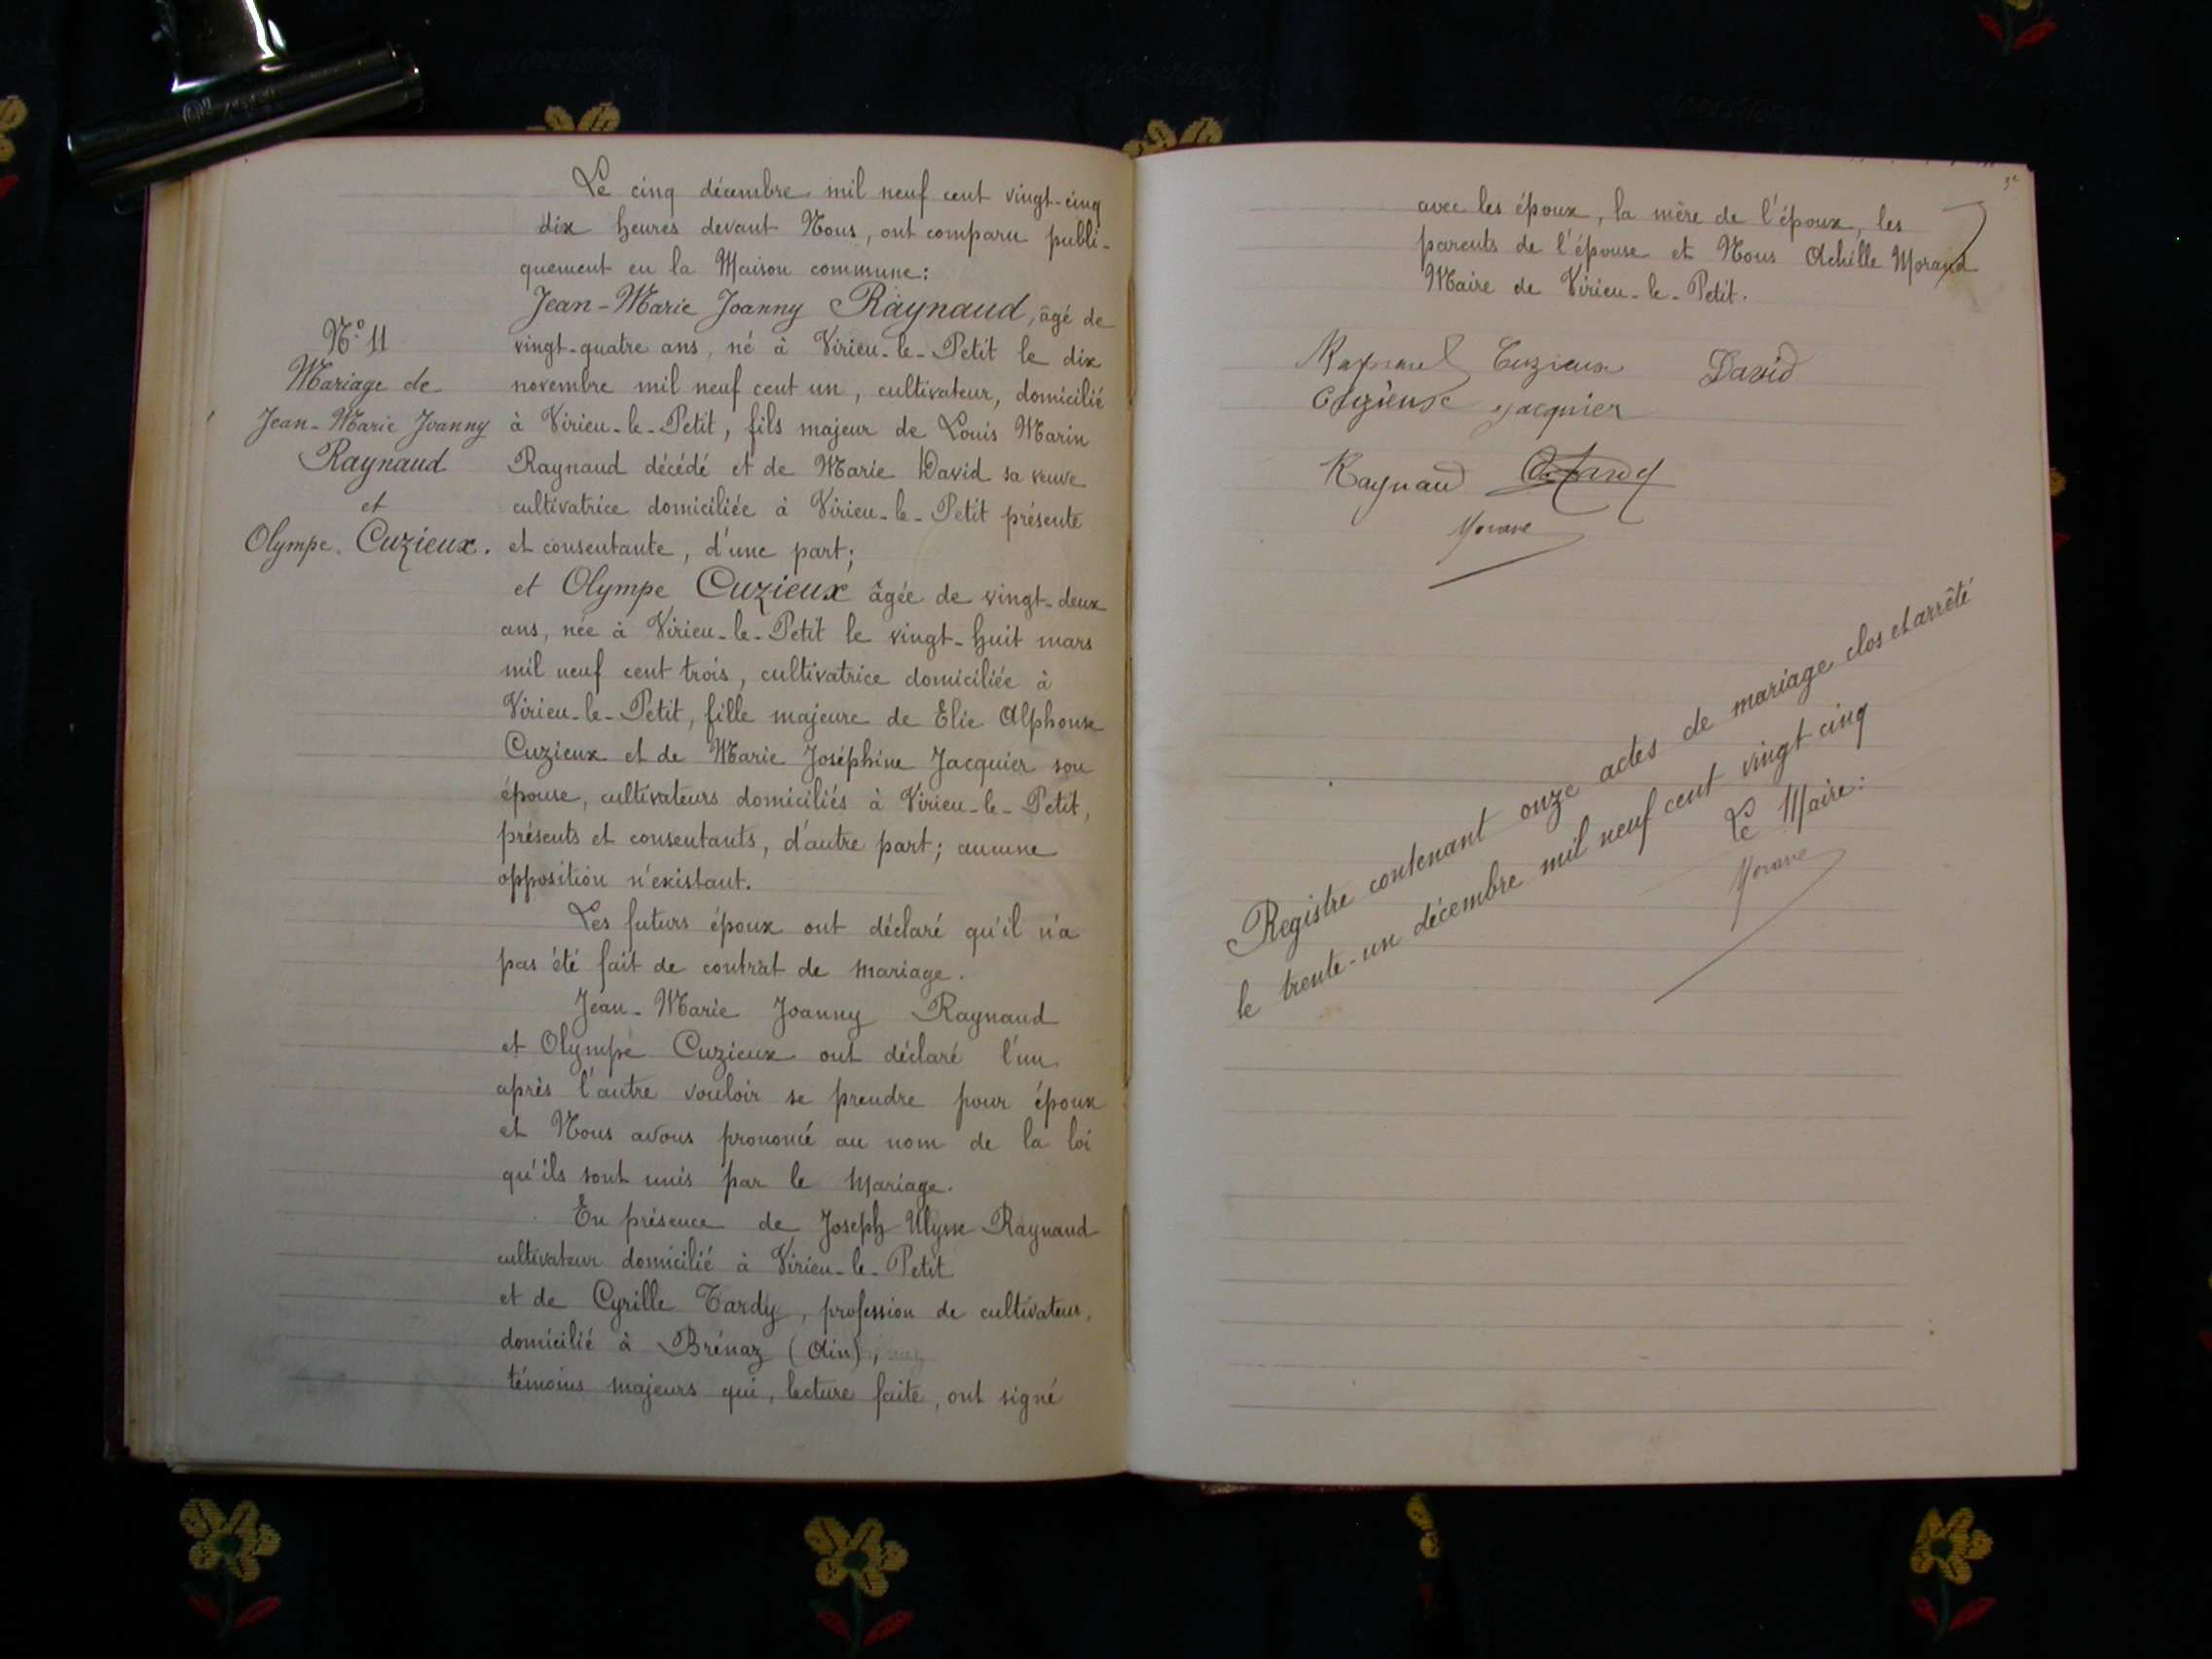 Le cinq décembre mil neuf cent vingt-cinq
dix heures devant Nous, ont comparu publi-
quement en la Maison commune:
Jean-Marie Joanny Raynaud, âgé de
vingt-quatre ans, né à Virieu-le-Petit le dix
novembre mil neuf cent un, cultivateur, domicilié
à Virieu-le-Petit, fils majeur de Louis Marin
Raynaud décédé et de Marie David sa veuve
cultivatrice domiciliée à Virieu-le-Petit présente
et consentante, d'une part;
et Olympe Cuzieux âgée de vingt-deux
ans, née à Virieu-le-Petit le vingt-huit mars
mil neuf cent trois, cultivatrice domiciliée à
Virieu-le-Petit, fille majeure de Elie Alphonse
Cuzieux et de Marie Joséphine Jacquier son
épouse, cultivateurs domiciliés à Virieu-le-Petit,
présents et consentants, d'autre part; aucune
opposition n'existant.
Les futurs époux ont déclaré qu'il n'a
pas été fait de contrat de mariage.
Jean-Marie Joanny Raynaud
et Olympe Cuzieux ont déclaré l'un
après l'autre vouloir se prendre pour époux
et Nous avons prononcé au nom de la loi
qu'ils sont unis par le Mariage.
En présence de Joseph Ulysse Raynaud
cultivateur domicilié à Virieu-le-Petit
et de Cyrille Tardy, profession de cultivateur,
domicilié à Brénaz (Ain),
témoins majeurs qui, lecture faite, ont signé
N° 11
Mariage de
Jean-Marie Joanny
Raynaud
et
Olympe Cuzieux.
avec les époux, la mère de l'époux, les
parents de l'épouse et Nous Achille Morand
Maire de Virieu-le-Petit.
Raynaud Cuzieux David
Cuzieux Jacquier
Raynaud Tardy
Morand
Registre contenant onze actes de mariage clos et arrêté
le trente-un décembre mil neuf cent vingt cinq
Le Maire:
Morand